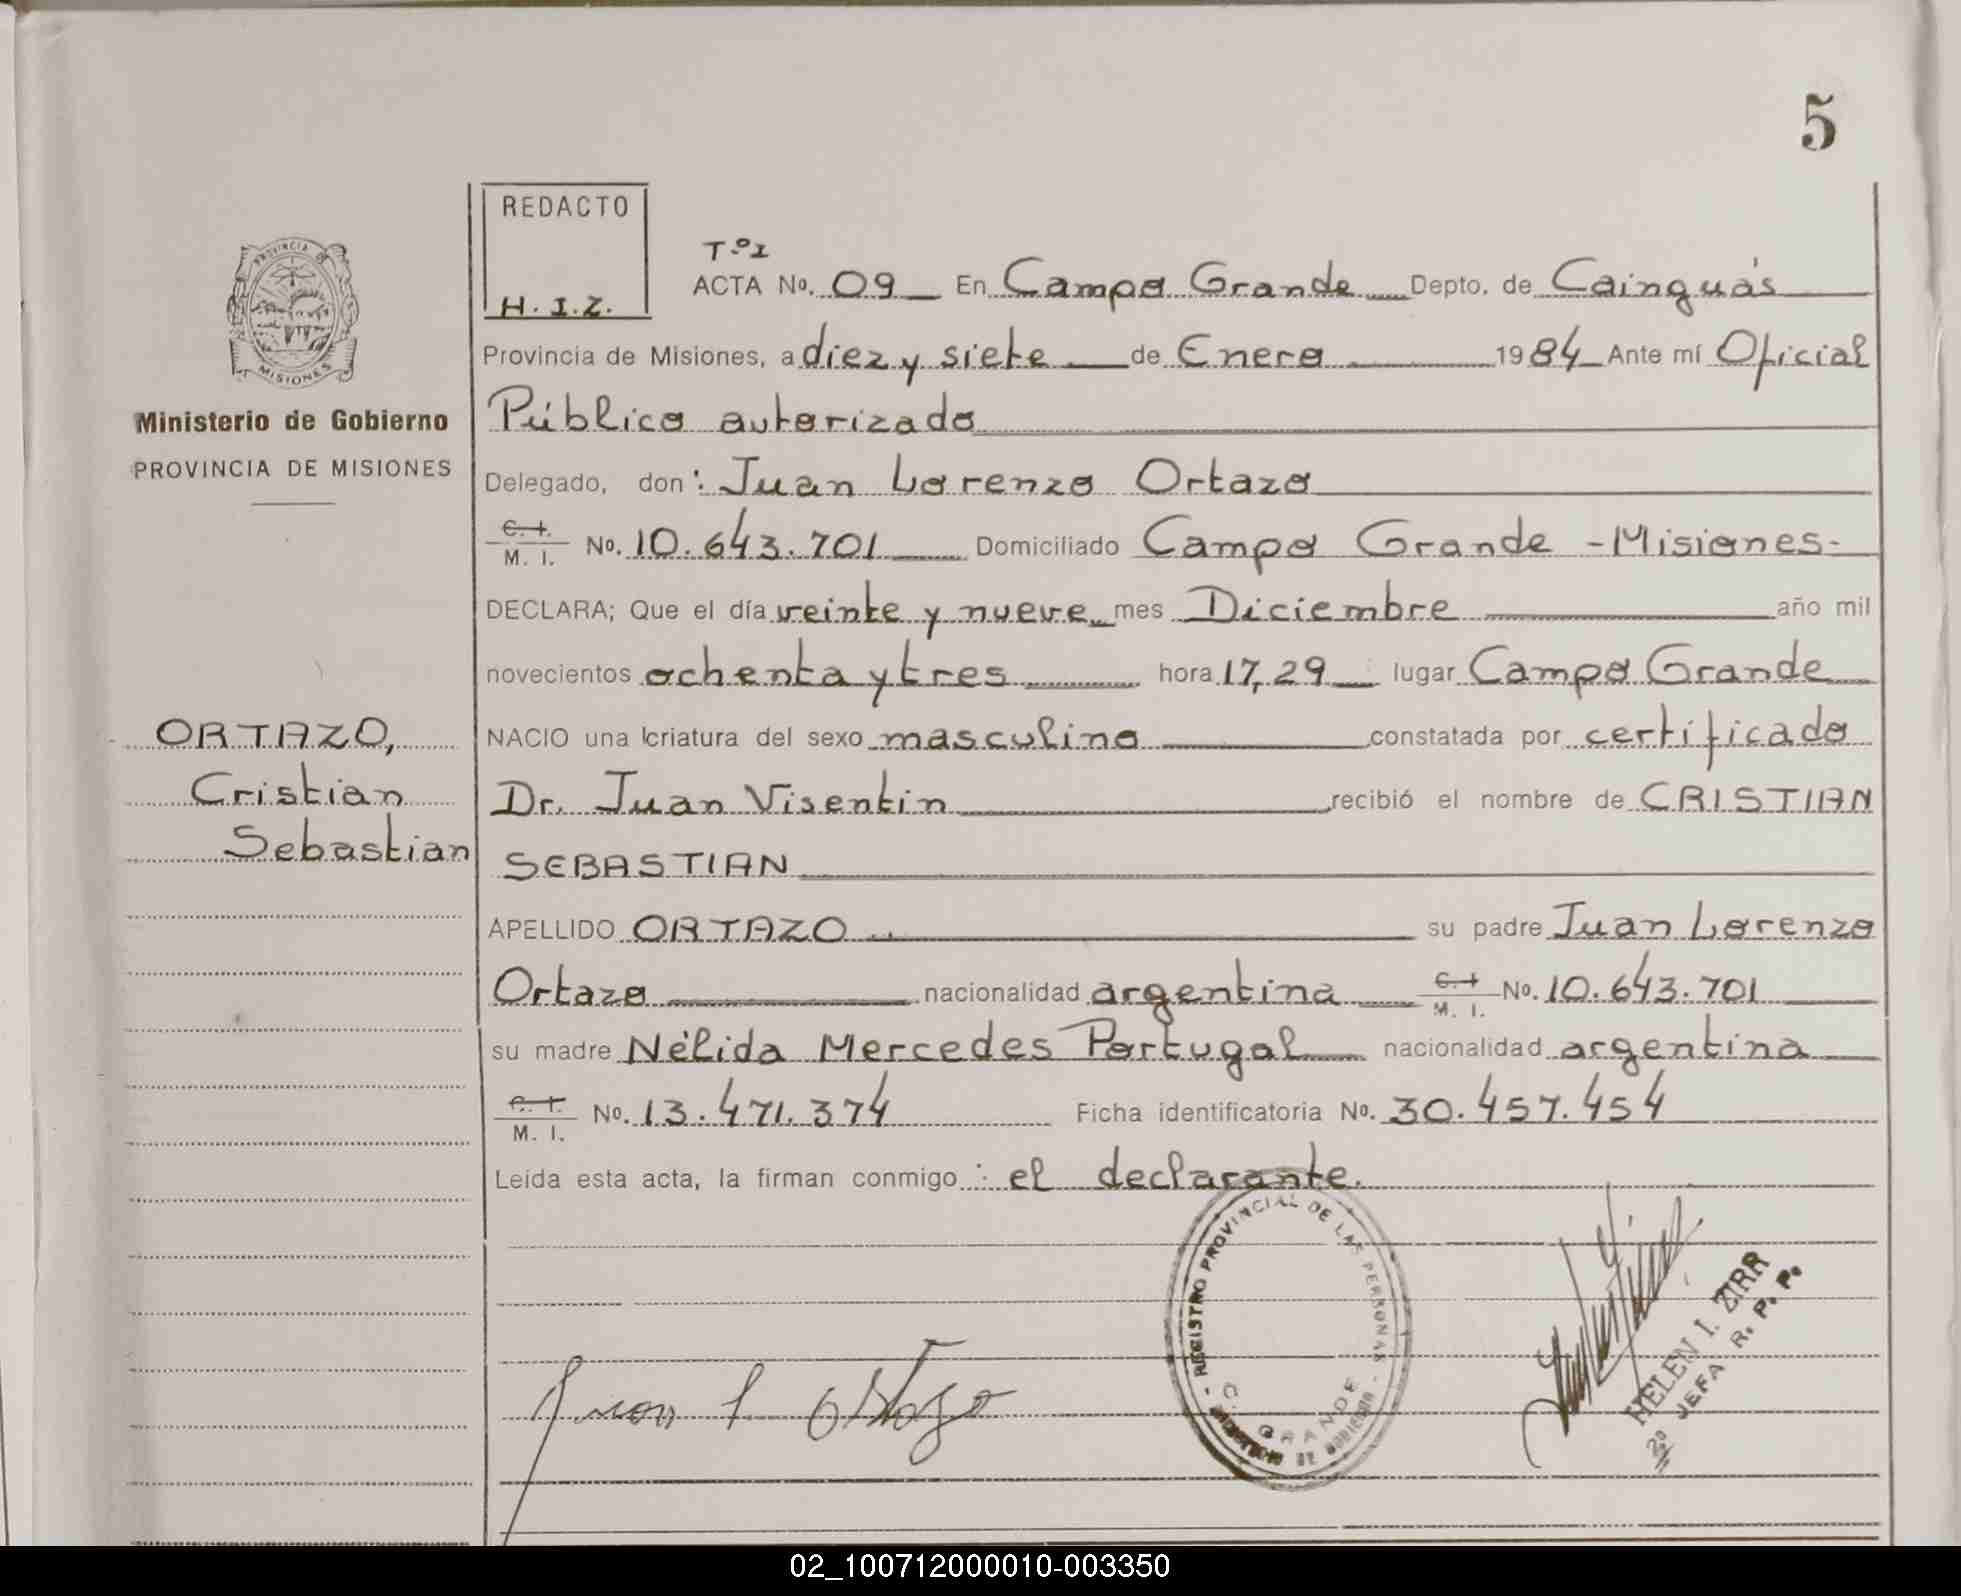 5
REDACTO
H. I. Z.
Tº1
ACTA No. 09 En Campo Grande Depto. de Cainguás
Provincia de Misiones, a diez y siete de Enero 1984 Ante mí Oficial
Público autorizado
Delegado, don: Juan Lorenzo Ortazo
C. I.
M. I. No. 10.643.701 Domiciliado Campo Grande -Misiones-
DECLARA; Que el día veinte y nueve mes Diciembre año mil
novecientos ochenta y tres hora 17,29 lugar Campo Grande
NACIO una criatura del sexo masculino constatada por certificado
Dr. Juan Visentin recibió el nombre de CRISTIAN
SEBASTIAN
APELLIDO ORTAZO su padre Juan Lorenzo
Ortazo nacionalidad argentina C. I. M. I. No. 10.643.701
su madre Nélida Mercedes Portugal nacionalidad argentina
C. I.
M. I. No. 13.471.374 Ficha identificatoria No. 30.457.454
Leída esta acta, la firman conmigo: el declarante.
PROVINCIA
MISIONES
Ministerio de Gobierno
PROVINCIA DE MISIONES
ORTAZO,
Cristian
Sebastian
Juan L. Ortazo
REGISTRO PROVINCIAL DE LAS PERSONAS
C. GRANDE
MINISTERIO DE GOBIERNO
HELEN I. ZIRR
JEFA R. P. P.
2º
02_100712000010-003350